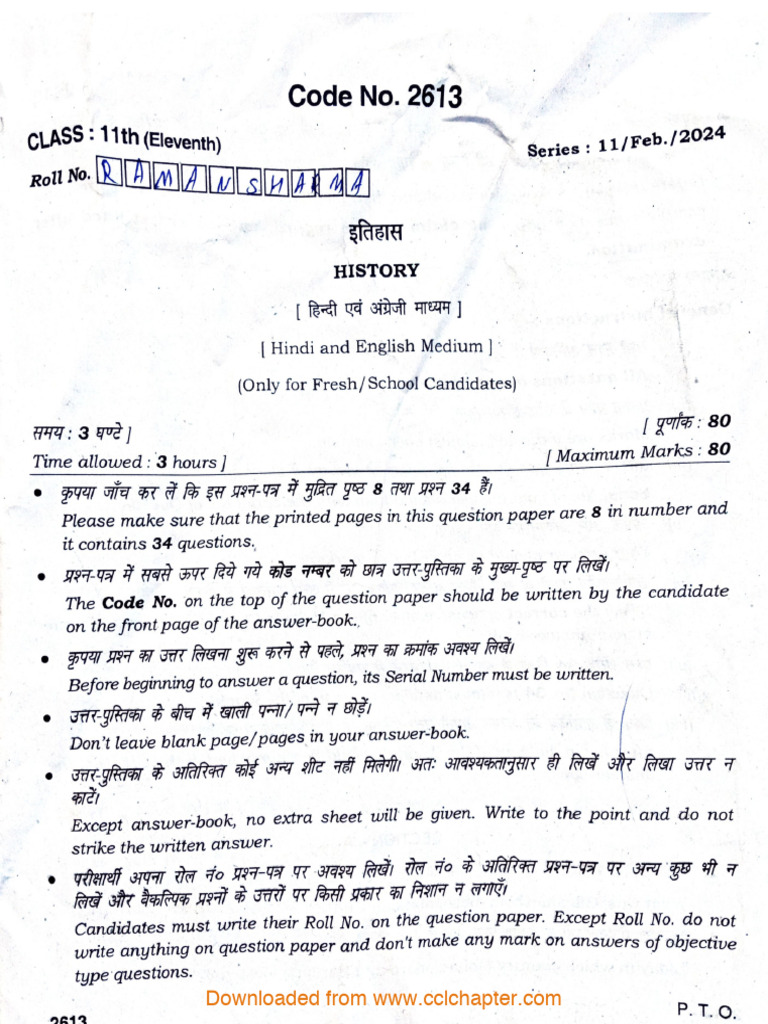 Code No. 2613
CLASS : 11th (Eleventh)
Series : 11/Feb./2024
Roll No. RAMANSHARMA
इतिहास
HISTORY
[ हिन्दी एवं अंग्रेजी माध्यम ]
[ Hindi and English Medium ]
(Only for Fresh/School Candidates)
समय : 3 घण्टे ]
[ पूर्णांक : 80
Time allowed : 3 hours ]
[ Maximum Marks : 80
• कृपया जाँच कर लें कि इस प्रश्न-पत्र में मुद्रित पृष्ठ 8 तथा प्रश्न 34 हैं।
Please make sure that the printed pages in this question paper are 8 in number and
it contains 34 questions.
• प्रश्न-पत्र में सबसे ऊपर दिये गये कोड नम्बर को छात्र उत्तर-पुस्तिका के मुख्य-पृष्ठ पर लिखें।
The Code No. on the top of the question paper should be written by the candidate
on the front page of the answer-book.
• कृपया प्रश्न का उत्तर लिखना शुरू करने से पहले, प्रश्न का क्रमांक अवश्य लिखें।
Before beginning to answer a question, its Serial Number must be written.
• उत्तर-पुस्तिका के बीच में खाली पन्ना/पन्ने न छोड़ें।
Don't leave blank page/pages in your answer-book.
• उत्तर-पुस्तिका के अतिरिक्त कोई अन्य शीट नहीं मिलेगी। अतः आवश्यकतानुसार ही लिखें और लिखा उत्तर न
काटें।
Except answer-book, no extra sheet will be given. Write to the point and do not
strike the written answer.
• परीक्षार्थी अपना रोल नं० प्रश्न-पत्र पर अवश्य लिखें। रोल नं० के अतिरिक्त प्रश्न-पत्र पर अन्य कुछ भी न
लिखें और वैकल्पिक प्रश्नों के उत्तरों पर किसी प्रकार का निशान न लगाएँ।
Candidates must write their Roll No. on the question paper. Except Roll No. do not
write anything on question paper and don't make any mark on answers of objective
type questions.
Downloaded from www.cclchapter.com
2613
P. T. O.